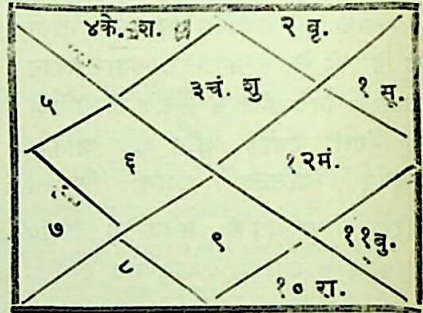 ४के. श. २ वृ.
३चं. शु १ सू.
५
६ १२मं.
७ ९ ११बु.
८
१० रा.